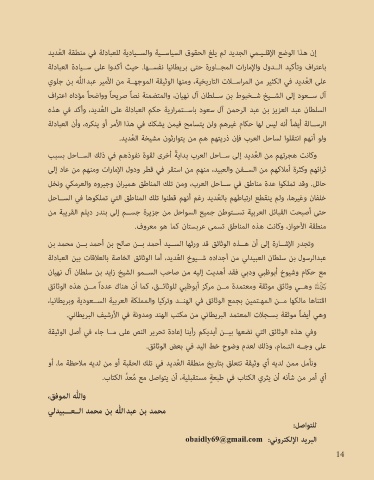 إن هذا الوضع الإقليمي الجديد لم يلغ الحقوق السياسية والسيادية للعبادلة في منطقة الغديد
باعتراف وتأكيد الدول والإمارات المجاورة حتى بريطانيا نفسها. حيث أكدوا على سيادة العبادلة
على الغديد في الكثير من المراسلات التاريخية، ومنها الوثيقة الموجهة من الأمير عبدالله بن جلوي
آل سعود إلى الشيخ شخبوط بن سلطان آل نهيان، والمتضمنة نصاً صريحاً وواضحاً مؤداه اعتراف
السلطان عبد العزيز بن عبد الرحمن آل سعود باستمرارية حكم العبادلة على الغديد، وأكد في هذه
الرسالة أيضاً أنه ليس لها حكام غيرهم ولن يتسامح فيمن يشكك في هذا الأمر أو ينكره، وأن العبادلة
ولو أنهم انتقلوا لساحل العرب فإن ذريتهم هم من يتوارثون مشيخة الغديد.
وكانت هجرتهم من الغديد إلى ساحل العرب بدايةً أخرى لقوة نفوذهم في ذلك الساحل بسبب
ثرائهم وكثرة أملاكهم من السفن والعبيد، منهم من استقر في قطر ودول الإمارات ومنهم من عاد إلى
حائل. وقد تملكوا عدة مناطق في ساحل العرب، ومن تلك المناطق هميران وجيروه والعرمكي ونخل
خلفان وغيرها، ولم ينقطع ارتباطهم بالغديد رغم أنهم قطنوا تلك المناطق التي تملكوها في الساحل
حتى أصبحت القبائل العربية تستوطن جميع السواحل من جزيرة جسم إلى بندر ديلم القريبة من
منطقة الأحواز، وكانت هذه المناطق تسمى عربستان كما هو معروف.
وتجدر الإشارة إلى أن هذه الوثائق قد ورثها السيد أحمد بن صالح بن أحمد بن محمد بن
عبدالرسول بن سلطان العبيدلي من أجداده شيوخ الغديد، أما الوثائق الخاصة بالعلاقات بين العبادلة
مع حكام وشيوخ أبوظبي ودبي فقد أهديت إليه من صاحب السمو الشيخ زايد بن سلطان آل نهيان
وهي وثائق موثقة ومعتمدة من مركز أبوظبي للوثائق، كما أن هناك عدداً من هذه الوثائق
اقتناها مالكها من المهتمين بجمع الوثائق في الهند وتركيا والمملكة العربية السعودية وبريطانيا،
وهي أيضاً موثقة بسجلات المعتمد البريطاني من مكتب الهند ومدونة في الأرشيف البريطاني.
وفي هذه الوثائق التي نضعها بين أيديكم رأينا إعادة تحرير النص على ما جاء في أصل الوثيقة
على وجه التمام، وذلك لعدم وضوح خط اليد في بعض الوثائق.
ونأمل ممن لديه أي وثيقة تتعلق بتاريخ منطقة الغديد في تلك الحقبة أو من لديه ملاحظة ما، أو
أي أمر من شأنه أن يثري الكتاب في طبعةٍ مستقبلية، أن يتواصل مع مُعدِّ الكتاب.
والله الموفق،
محمد بن عبدالله بن محمد العبيدلي
للتواصل:
البريد الإلكتروني: obaidly69@gmail.com
14